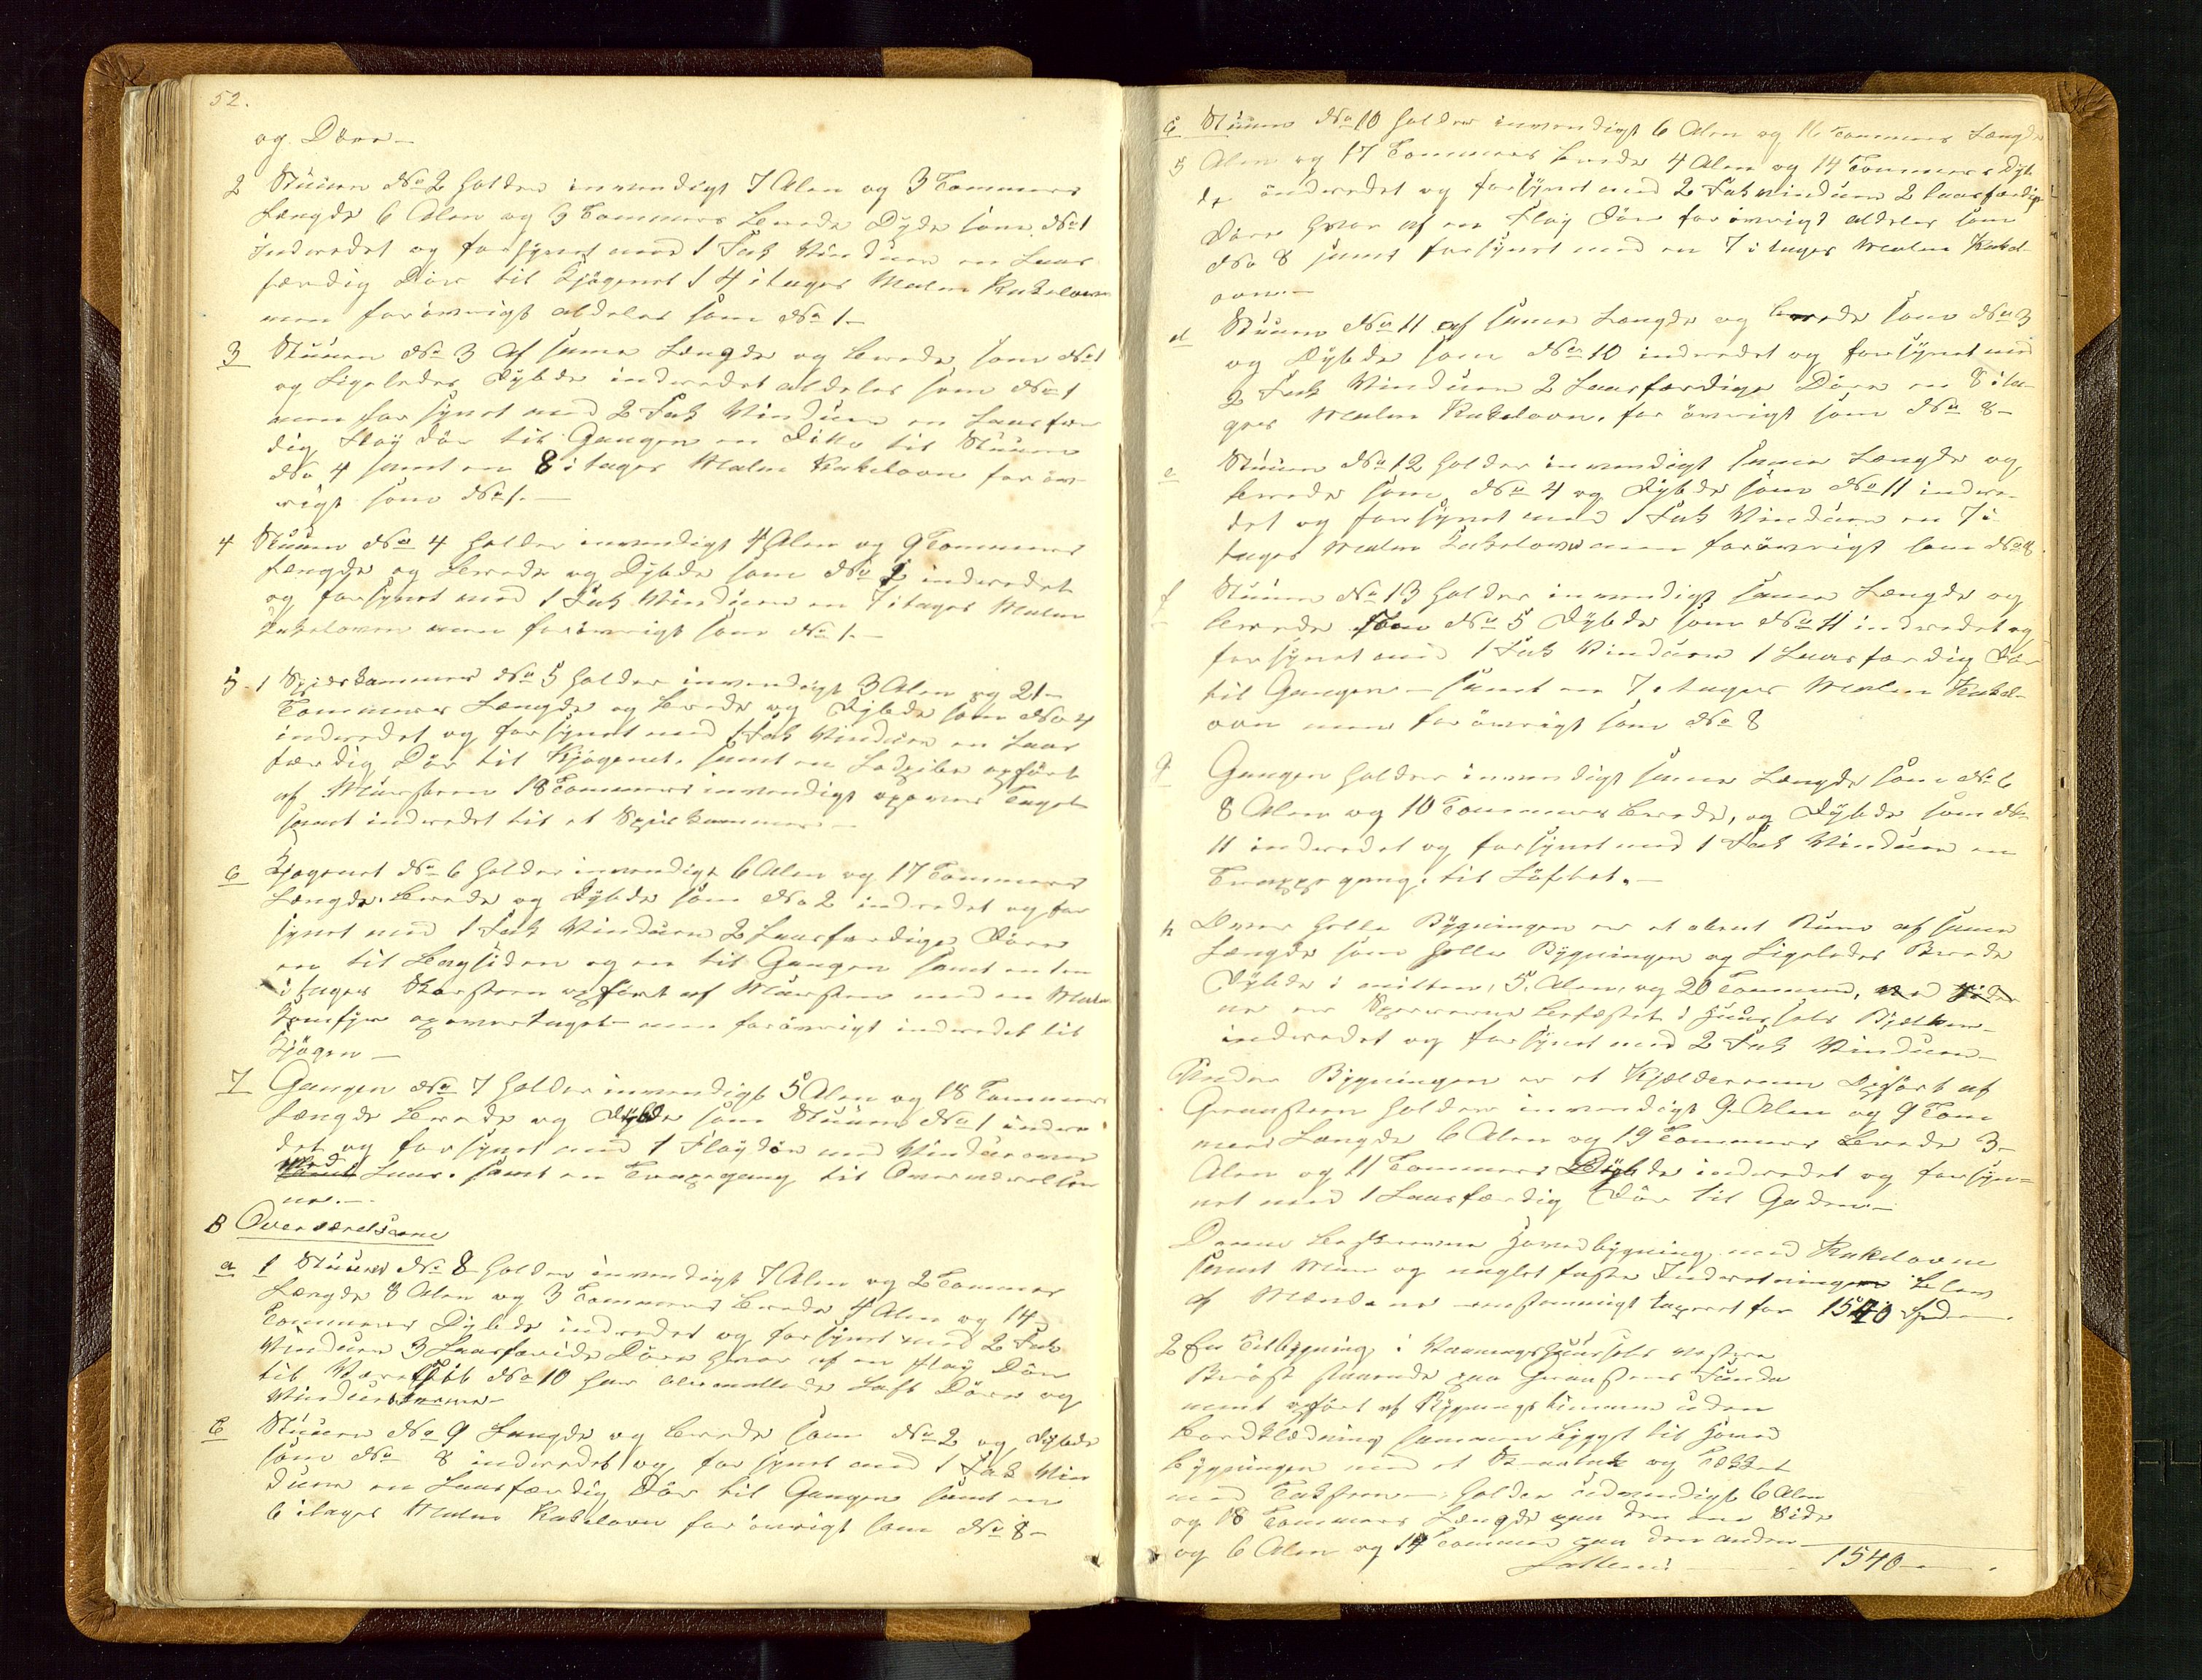 52.
og Döre —
2 Stuuen No 2 holder invendigt 7 Alen og 3 Tommers
Længde 6 Alen og 9 Tommers brede Dybde som No 1
indredet og forsÿnet med 1 Fak Vinduer en Laas
færdig Dör til Kjögenet 1 4 i tages Malm Kakelovn
men forövrigt aldeles som No 1 —
3 Stuuen No 3 af samme Længde og brede som No 1
og Ligeledes Dÿbde indredet aldeles som No 1
men forsÿnet med 2 Fak Vinduer en Laasfær
dig Flöÿ dör til Gangen en Ditto til Stuuen
No 4 samt en 8 i tages Malm Kakelovn foröv
rigt som No 1. —
4 Stuuen No 4 holder invendigt 4 Alen og 9 Tommers
Længde og brede og Dÿbde som No 2 indredet
og forsÿnet med 1 Fak Vinduer en 7 i tages Malm
Kakelovn men forövrigt som No 1. —
5 - 1 Spiskammer No 5 holder invendigt 3 Alen og 21 —
Tommers Længde og brede og Dÿbde som No 4
indredet og forsÿnet med 1 Fak Vinduer en Laas
færdig Dör til Kjögenet, samt en opfört
af Muursteen 18 Tommers invendigt Taget
samt indredet til et Spiskammer —
6 Kjögenet No 6 holder invendigt 6 Alen og 17 Tommers
Længde, brede og Dÿbde som No 2 indredet og for
sÿnet med 1 Fak Vinduer 2 Laasfærdige Döre
en til Bagsiden og en til Gangen samt en
i tages Skorsteen opfört af Muursteen med en Malm
Komfÿr men forövrigt indredet til
Kjögen —
7 Gangen No 7 holder invendigt 5 Alen og 18 Tommers
Længde brede og Dÿbde som Stuuen No 1 indre
det og forsÿnet med 1 Flöÿdör med Vinduer over
med Laas. samt en Trapegang til Overværelser
ne. —
B Overværelserne
a 1 Stuuen No 8 holder invendigt 7 Alen og 2 Tommer
Længde 8 Alen og 3 Tommers brede 4 Alen og 14
Tommers Dÿbde indredet og forsÿnet med 2 Fak
Vinduer 3 Laasfærdige Döre hvor af en Flöÿ Dör
til No 10 har Loft Döre og
Vindus —
b Stuuen No 9 Længde og brede som No 2 og Dÿbde
som No 8 indredet og forsÿnet med 1 Fak Vin
duer en Laasfærdig Dör til Gangen samt en
6 i tages Malm Kakelovn forövrigt som No 8 —
c Stuuen No 10 holder invendigt 6 Alen og 16 Tommers Længde
5 Alen og 17 Tommers brede 4 Alen og 14 Tommers Dÿb
de indredet og forsÿnet med 2 Fak vinduer 2 laasfærdige
Döre hvor af en Flöÿ Dör forövrigt aldeles som
No 8 samt forsÿnet med en 7 i tages Malm Kakel
ovn. —
d Stuuen No 11 af samme Længde og brede som No 3
og Dÿbde som No 10 indredet og forsÿnet med
2 Fak Vinduer 2 Laasfærdige Döre en 8 i ta
ges Malm Kakelovn. forövrigt som No 8 —
e Stuuen No 12 holder invendigt samme Længde og
brede som No 4 og Dÿbde som No 11 indre
det og forsÿnet med 1 Fak Vinduer en 7 i
tages Malm Kakelovn men forövrigt som No 8.
f Stuuen No 13 holder invendigt samme Længde og
brede som No 5 Dÿbde som No 11 indredet og
forsÿnet med 1 Fak Vinduer 1 Laasfærdig Dör
til Gangen — samt en 7 i tages Malm Kakel
ovn men forövrigt som No 8
g Gangen holder invendigt samme Længde som No 6
8 Alen og 10 Tommers brede, og Dÿbde som No
11 indredet og forsÿnet med 1 Fak Vinduer en
Trappegang til Löftet. —
h Over hele Bÿgningen er et Rum af samme
Længde som hele Bÿgningen og Ligeledes Brede
Dÿbde i midten, 5 Alen og 20 Tommer, ved Sider
ne er Sperrerne befæstet i Huusets Bjelker —
indredet og forsÿnet med 2 Fak Vinduer —
Under Bÿgningen er et Kjælderrum Opfört af
Graasteen holder invendigt 9 Alen og 9 Tom
mers Længde 6 Alen og 19 Tommers brede 3 —
Alen og 11 Tommers Dÿbde indredet og forsÿ-
net med 1 Laasfærdig Dör til Gaden —
Denne beskrevne Hovedbÿgning med Kakelovne
samt Muur og naglet faste Indretninger blev
af Mændene eenstemmigt taxeret for 1540 Spd —
2 En Tilbÿgning i Vaaningshuusets vestre
Bröst staaende paa Graasteens Funda
ment opfört af Bÿgnings timmer uden
bordklædning sammenbÿgget til Hoved
bÿgningen med et og Tækket
med Taksteen — holder udvendigt 6 Alen
og 18 Tommers Længde paa den ene Side
og 6 Alen og 14 Tommer paa den anden —
Lattens — 1540 —